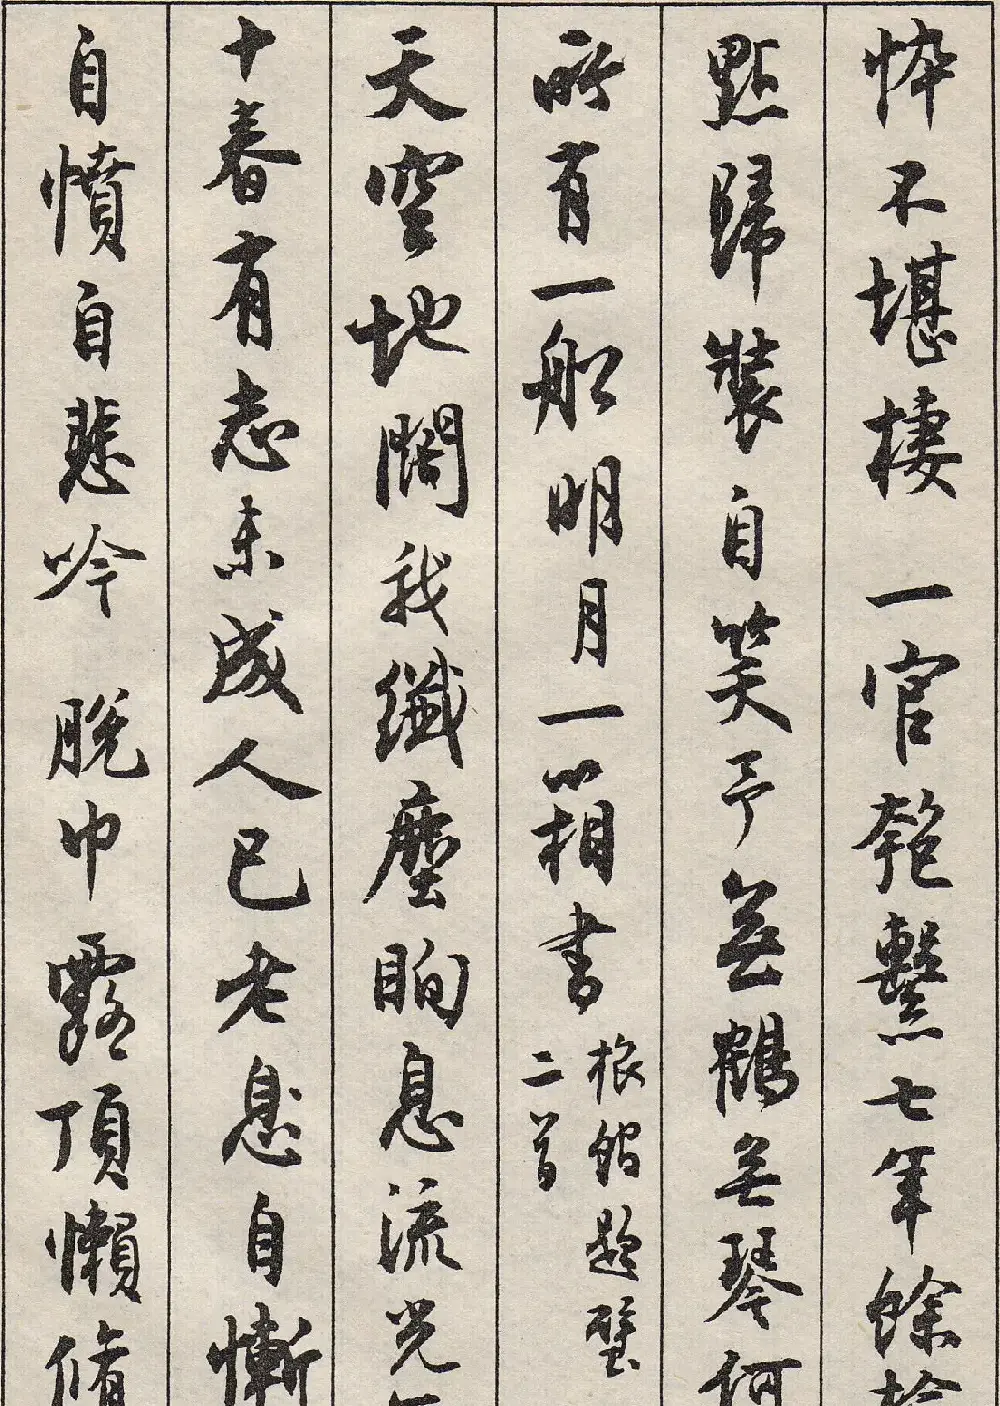 忰不堪棲 一官匏繫七年餘檢
點歸裝自笑予無鶴無琴何
所有一船明月一箱書 根館題壁
二首
天空地闊我纖塵眴息流光
十春有志未成人已老息自慚
自憤自悲吟 脫巾露頂懶脩